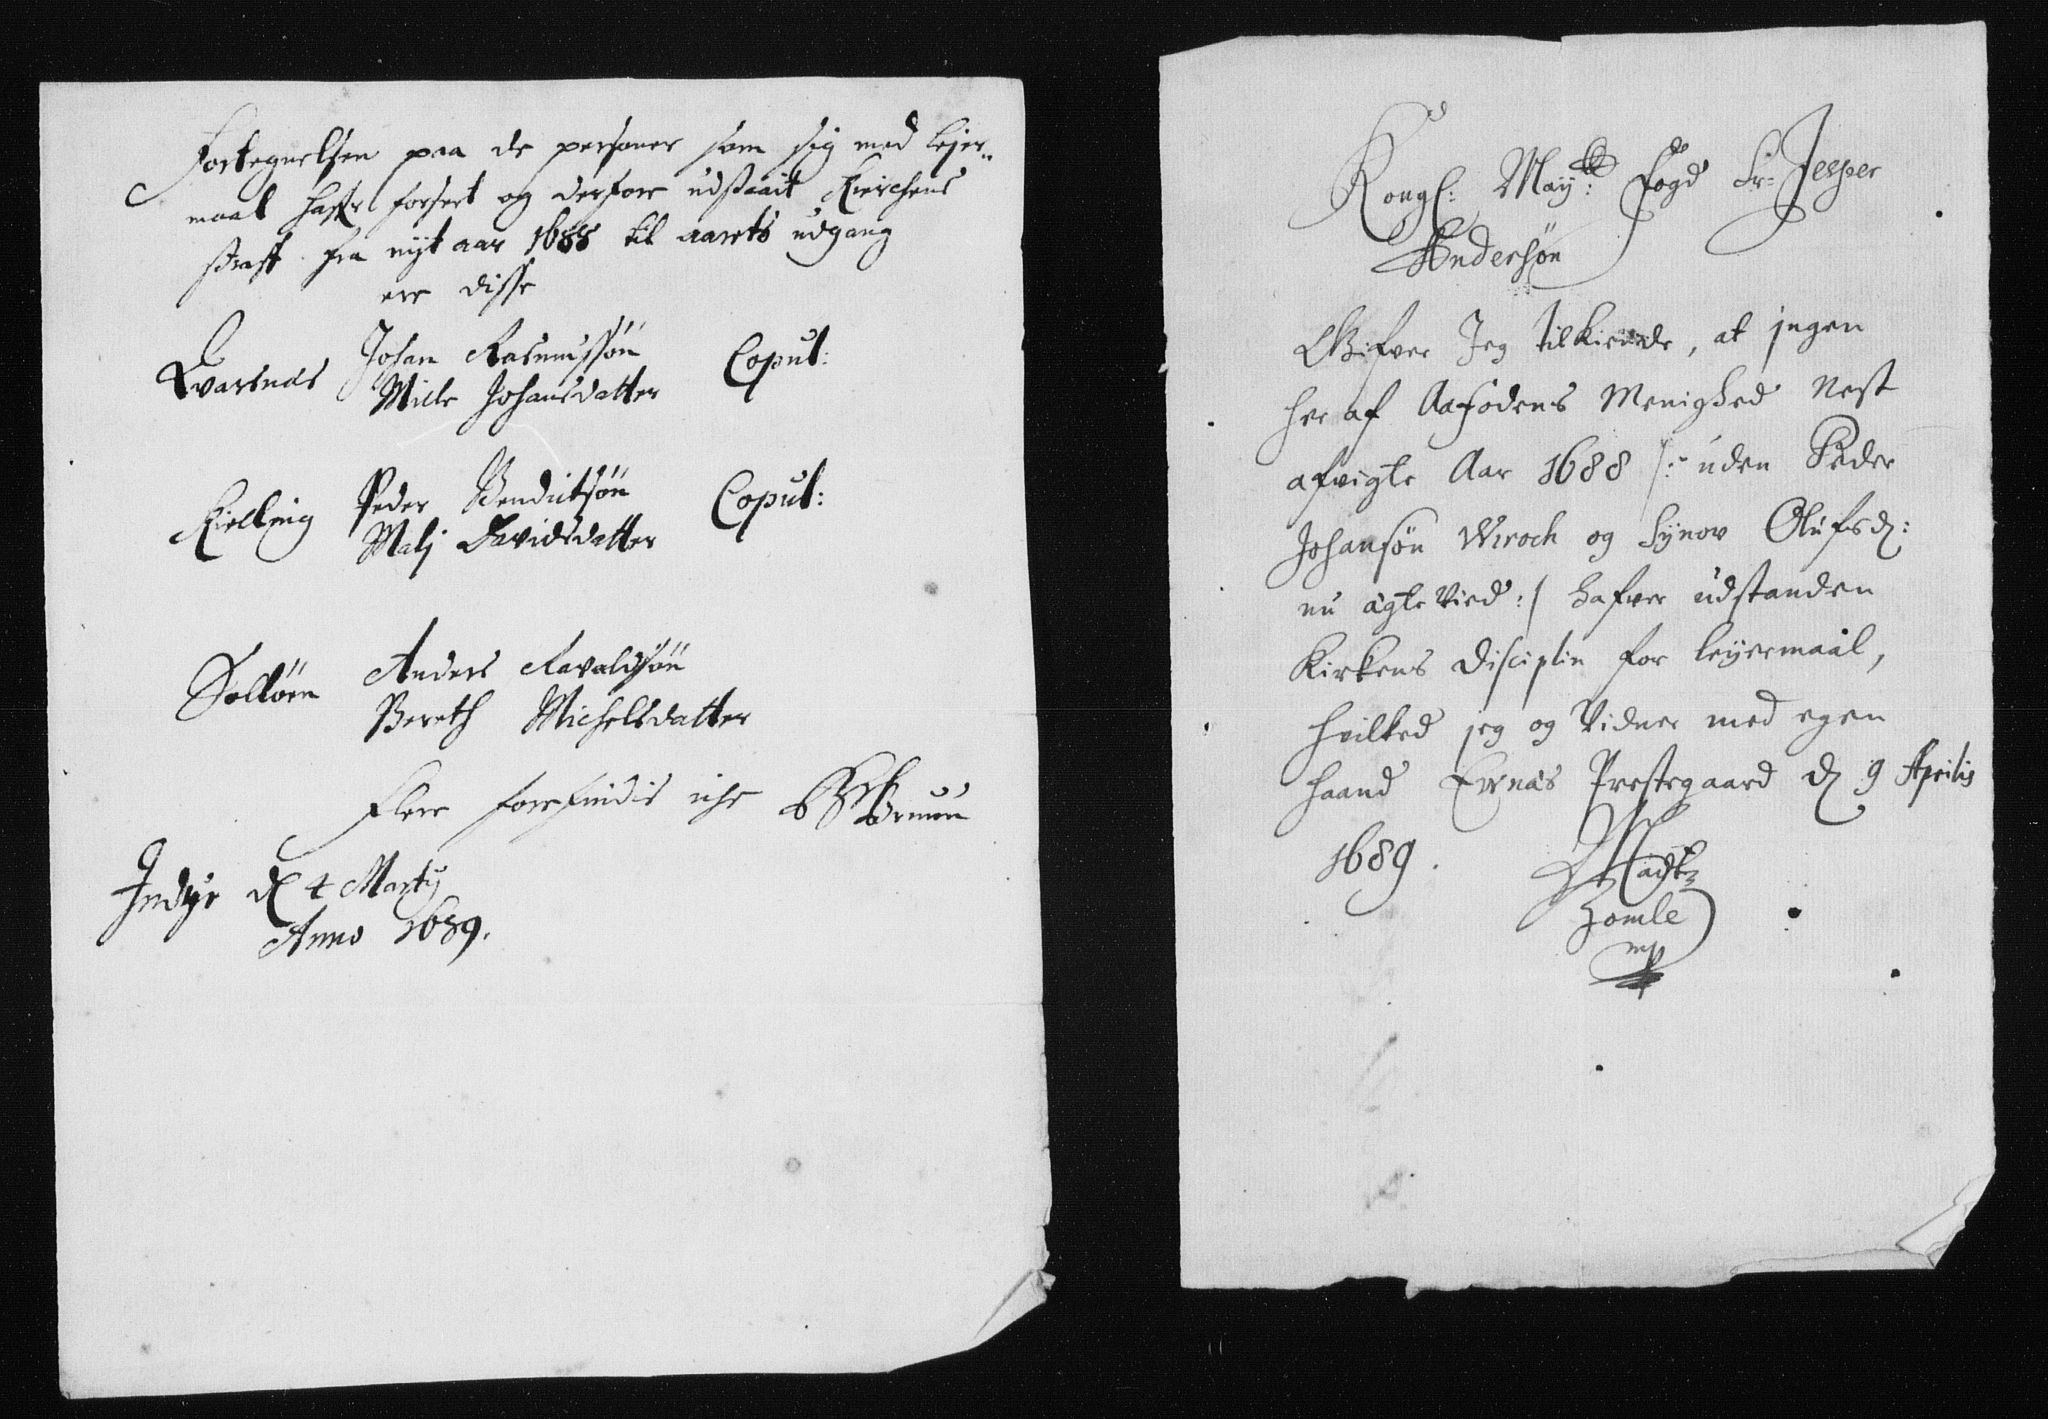 Fortegnelsen paa de personer som sig med lejer„
maal haffr forseet og derfore udstaait Kierchens
straff fra nyt aar 1688 til aarets udgang
ere disse
Evarsnæs Johan Rasmussøn Coput:
Mille Johansdatter
Kielling Peder Bendictsøn Coput:
Malj Davidsdatter
Soeløen Anders Ravaldsøn
Bereth Michelsdatter
Flere forefindis iche
Bruun
Indyr d 4 Martij
Anno 1689.
Kongl: May:tz Fogd Sr: Jesper
Andersøn
Gifver Jeg tilkiende, at jngen
her af Aafiodens Menighed Nest
afvigte Aar 1688 /: uden Peder
Johansøn Wroch og Synov Olufsd:
nu ægte Vied :/ hafver udstanden
Kirkens Disciplin for leyermaal,
hvilked jeg og Vidner med egen
haand Evenæs Prestegaard d 9 Aprilis
1689.
Homble
mp